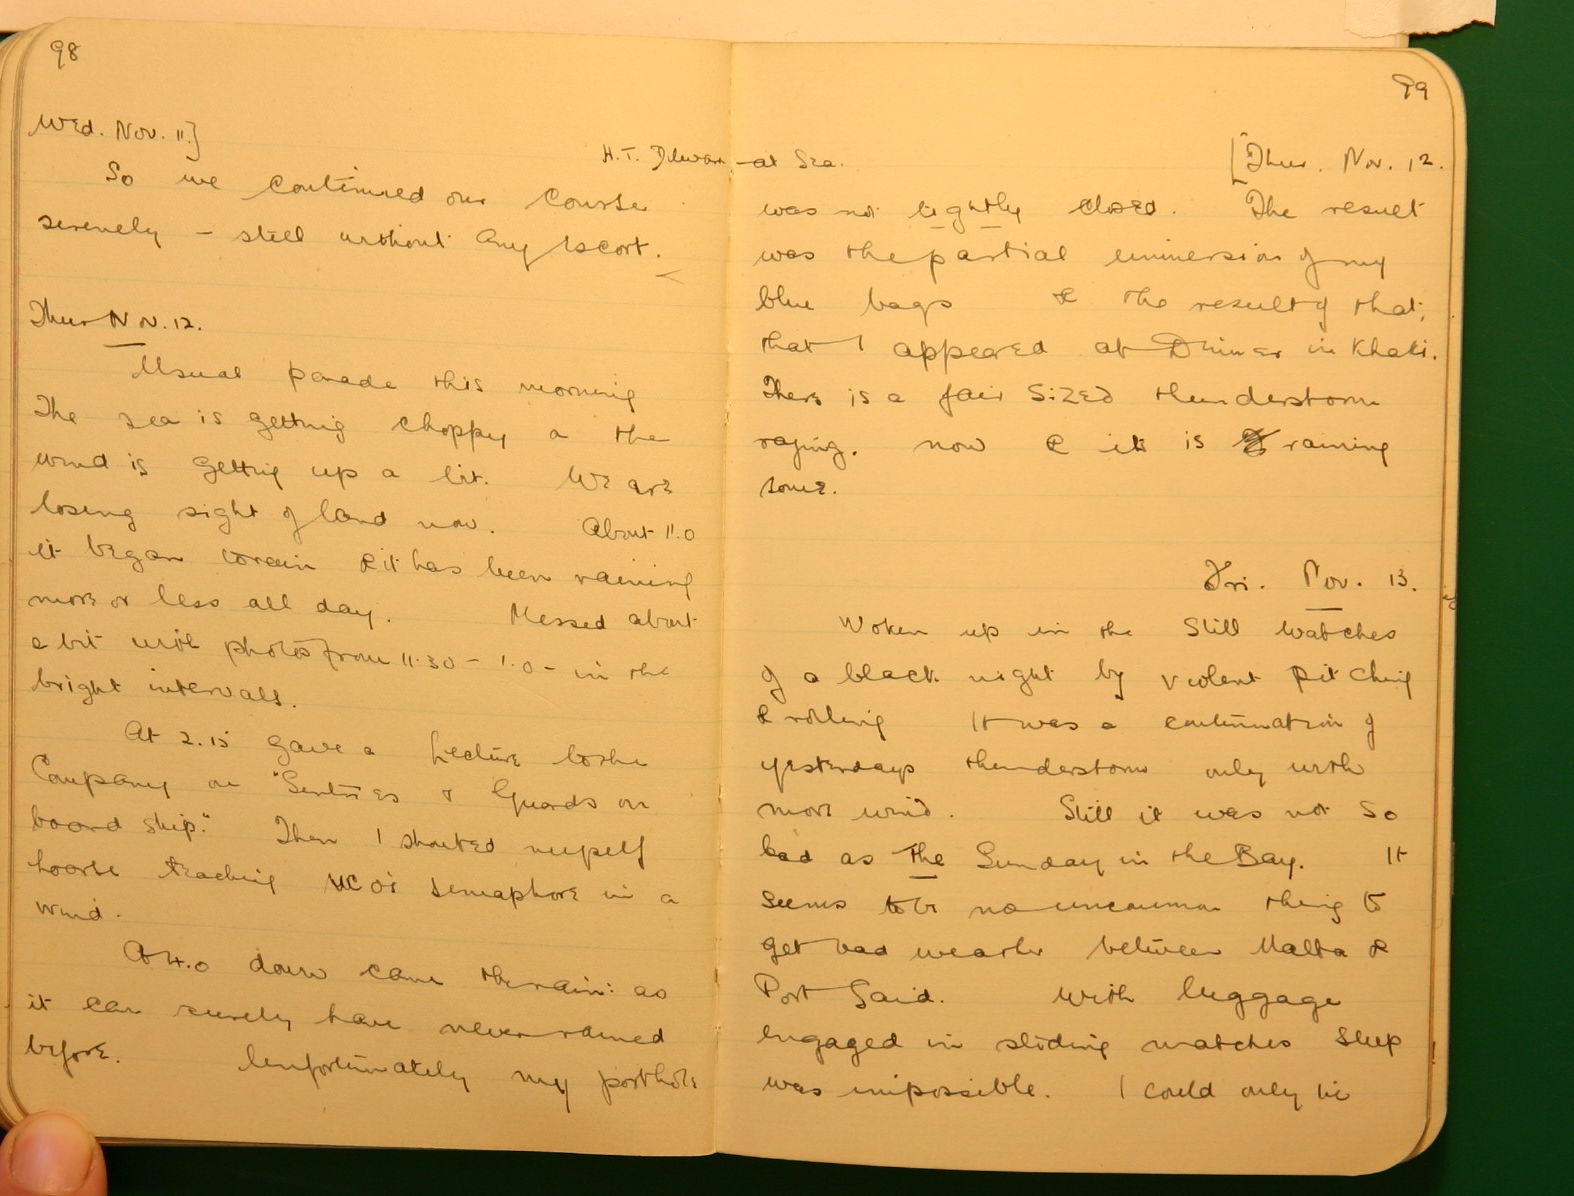 98
Wed. Nov. 11.]
So we continued our course
serenely – still without any escort.
Thur Nov. 12.
Usual parade this morning
The sea is getting choppy & the
wind is getting up a bit. We are
losing sight of land now. About 11.0
it began to rain & it has been raining
more or less all day. Messed about
a bit with photos from 11.30 – 1.0 – in the
bright intervals.
At 2.15 gave a Lecture to the
Company on "Sentries & Guards on
board ship." Then I shouted myself
hoarse teaching NCOs semaphore in a
wind.
At 4.0 down came the rain: as
it can surely have never rained
before. Unfortunately my porthole
99
H.T. Dilwara – at Sea.
[Thur. Nov. 12.
was not tightly closed. The result
was the partial immersion of my
blue bags & the result of that,
that I appeared at Dinner in Khaki.
There is a fair sized thunderstorm
raging. now & it is raining
some.
Fri. Nov. 13.
Woken up in the still watches
of a black night by violent pitching
& rolling It was a continuation of
yesterdays thunderstorm only with
more wind. Still it was not so
bad as the Sunday in the Bay. It
seems to be no uncommon thing to
get bad weather between Malta &
Port Said. With luggage
engaged in sliding matches sleep
was impossible. I could only lie